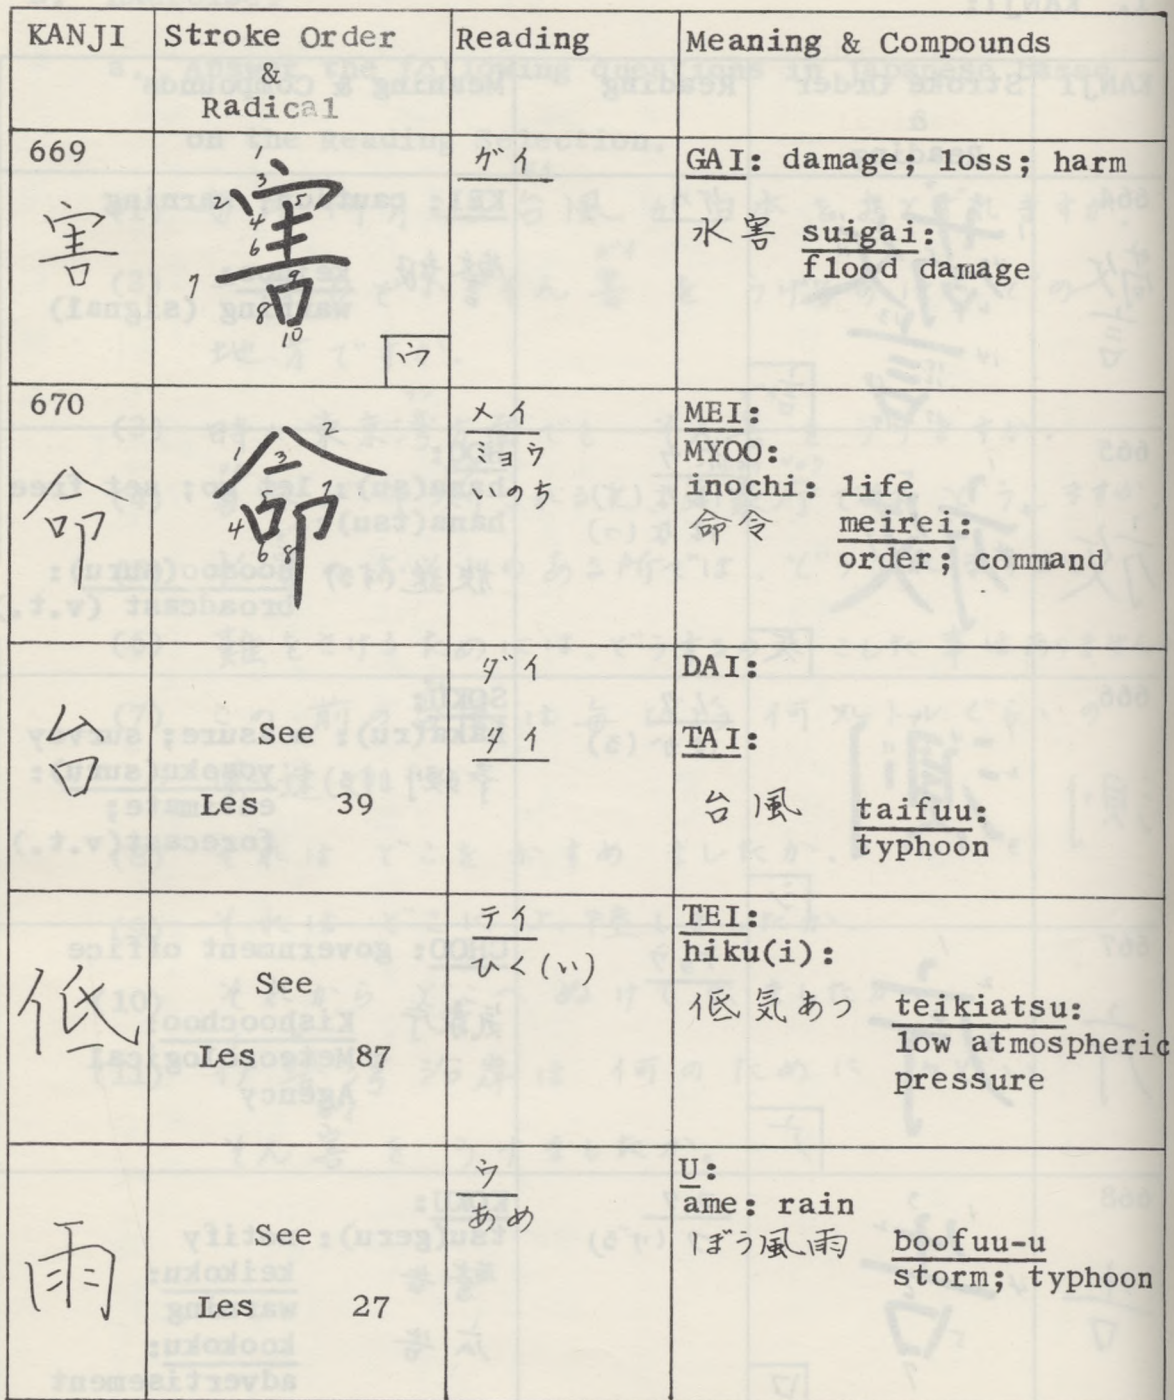 KANJI Stroke Order & Radical Reading Meaning & Compounds
669
害
害
1 2 3 4 5 6 7 8 9 10
宀
ガイ
GAI: damage; loss; harm
水害 suigai:
flood damage
670
命
命
1 2 3 4 5 6 7 8
メイ
ミョウ
いのち
MEI:
MYOO:
inochi: life
命令 meirei:
order; command
台
See
Les 39
ダイ
タイ
DAI:
TAI:
台風 taifuu:
typhoon
低
See
Les 87
テイ
ひく(い)
TEI:
hiku(i):
低気あつ teikiatsu:
low atmospheric
pressure
雨
See
Les 27
ウ
あめ
U:
ame: rain
ぼう風雨 boofuu-u
storm; typhoon